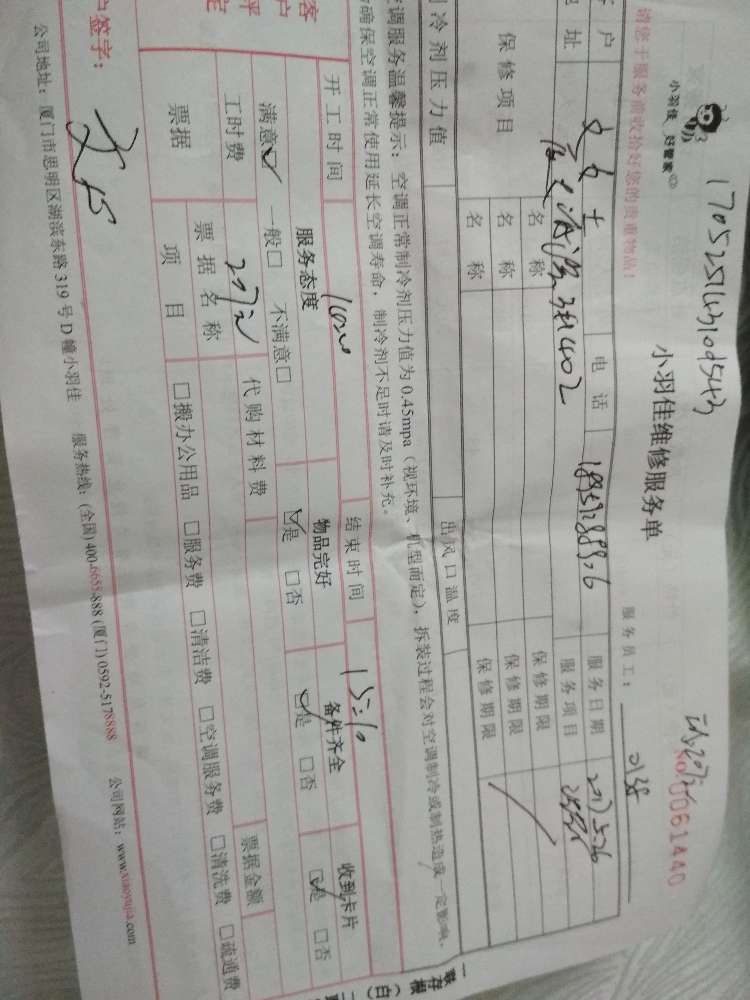 170525143109543
小羽佳 好管家
小羽佳维修服务单
No 0061440
请您于服务前收拾好您的贵重物品!
服务员工: 0138
户
电话
服务日期 2017.5.26
址
3#402
服务项目
保修项目
名称
保修期限
名称
保修期限
名称
保修期限
制冷剂压力值
出风口温度
空调服务温馨提示:空调正常制冷剂压力值为0.45mpa(视环境、机型而定),拆装过程会对空调制冷或制热造成一定影响,
确保空调正常使用延长空调寿命,制冷剂不足时请及时补充。
开工时间
结束时间 15:10
客
户
评
定
服务态度
物品完好
备件齐全
收到卡片
满意☑ 一般□ 不满意□
☑是 □否
☑是 □否
☑是 □否
工时费 207元
代购材料费
票据金额
票据
票据名称
项目
□搬办公用品 □服务费 □清洁费 □空调服务费 □清洗费 □疏通费
户签字:
公司地址:厦门市思明区湖滨东路319号D幢小羽佳 服务热线:(全国)400-6655-888(厦门)0592-5178888 公司网站:www.xiaoyujia.com
一联存根(白)二